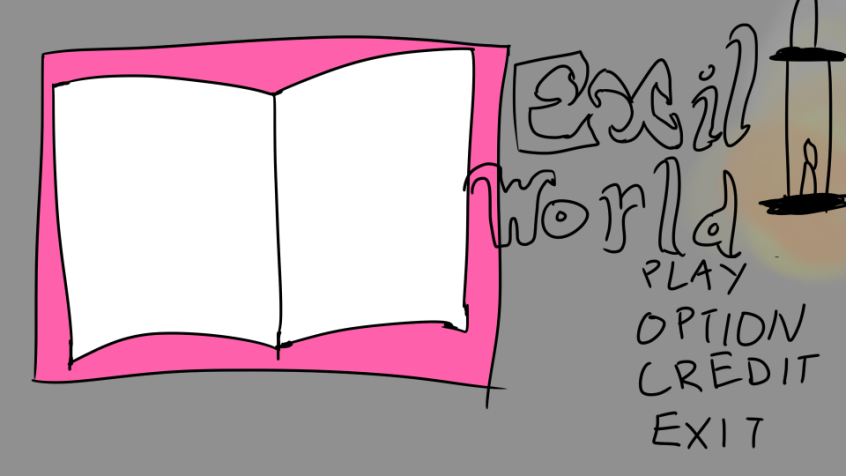 Exil
World
PLAY
OPTION
CREDIT
EXIT